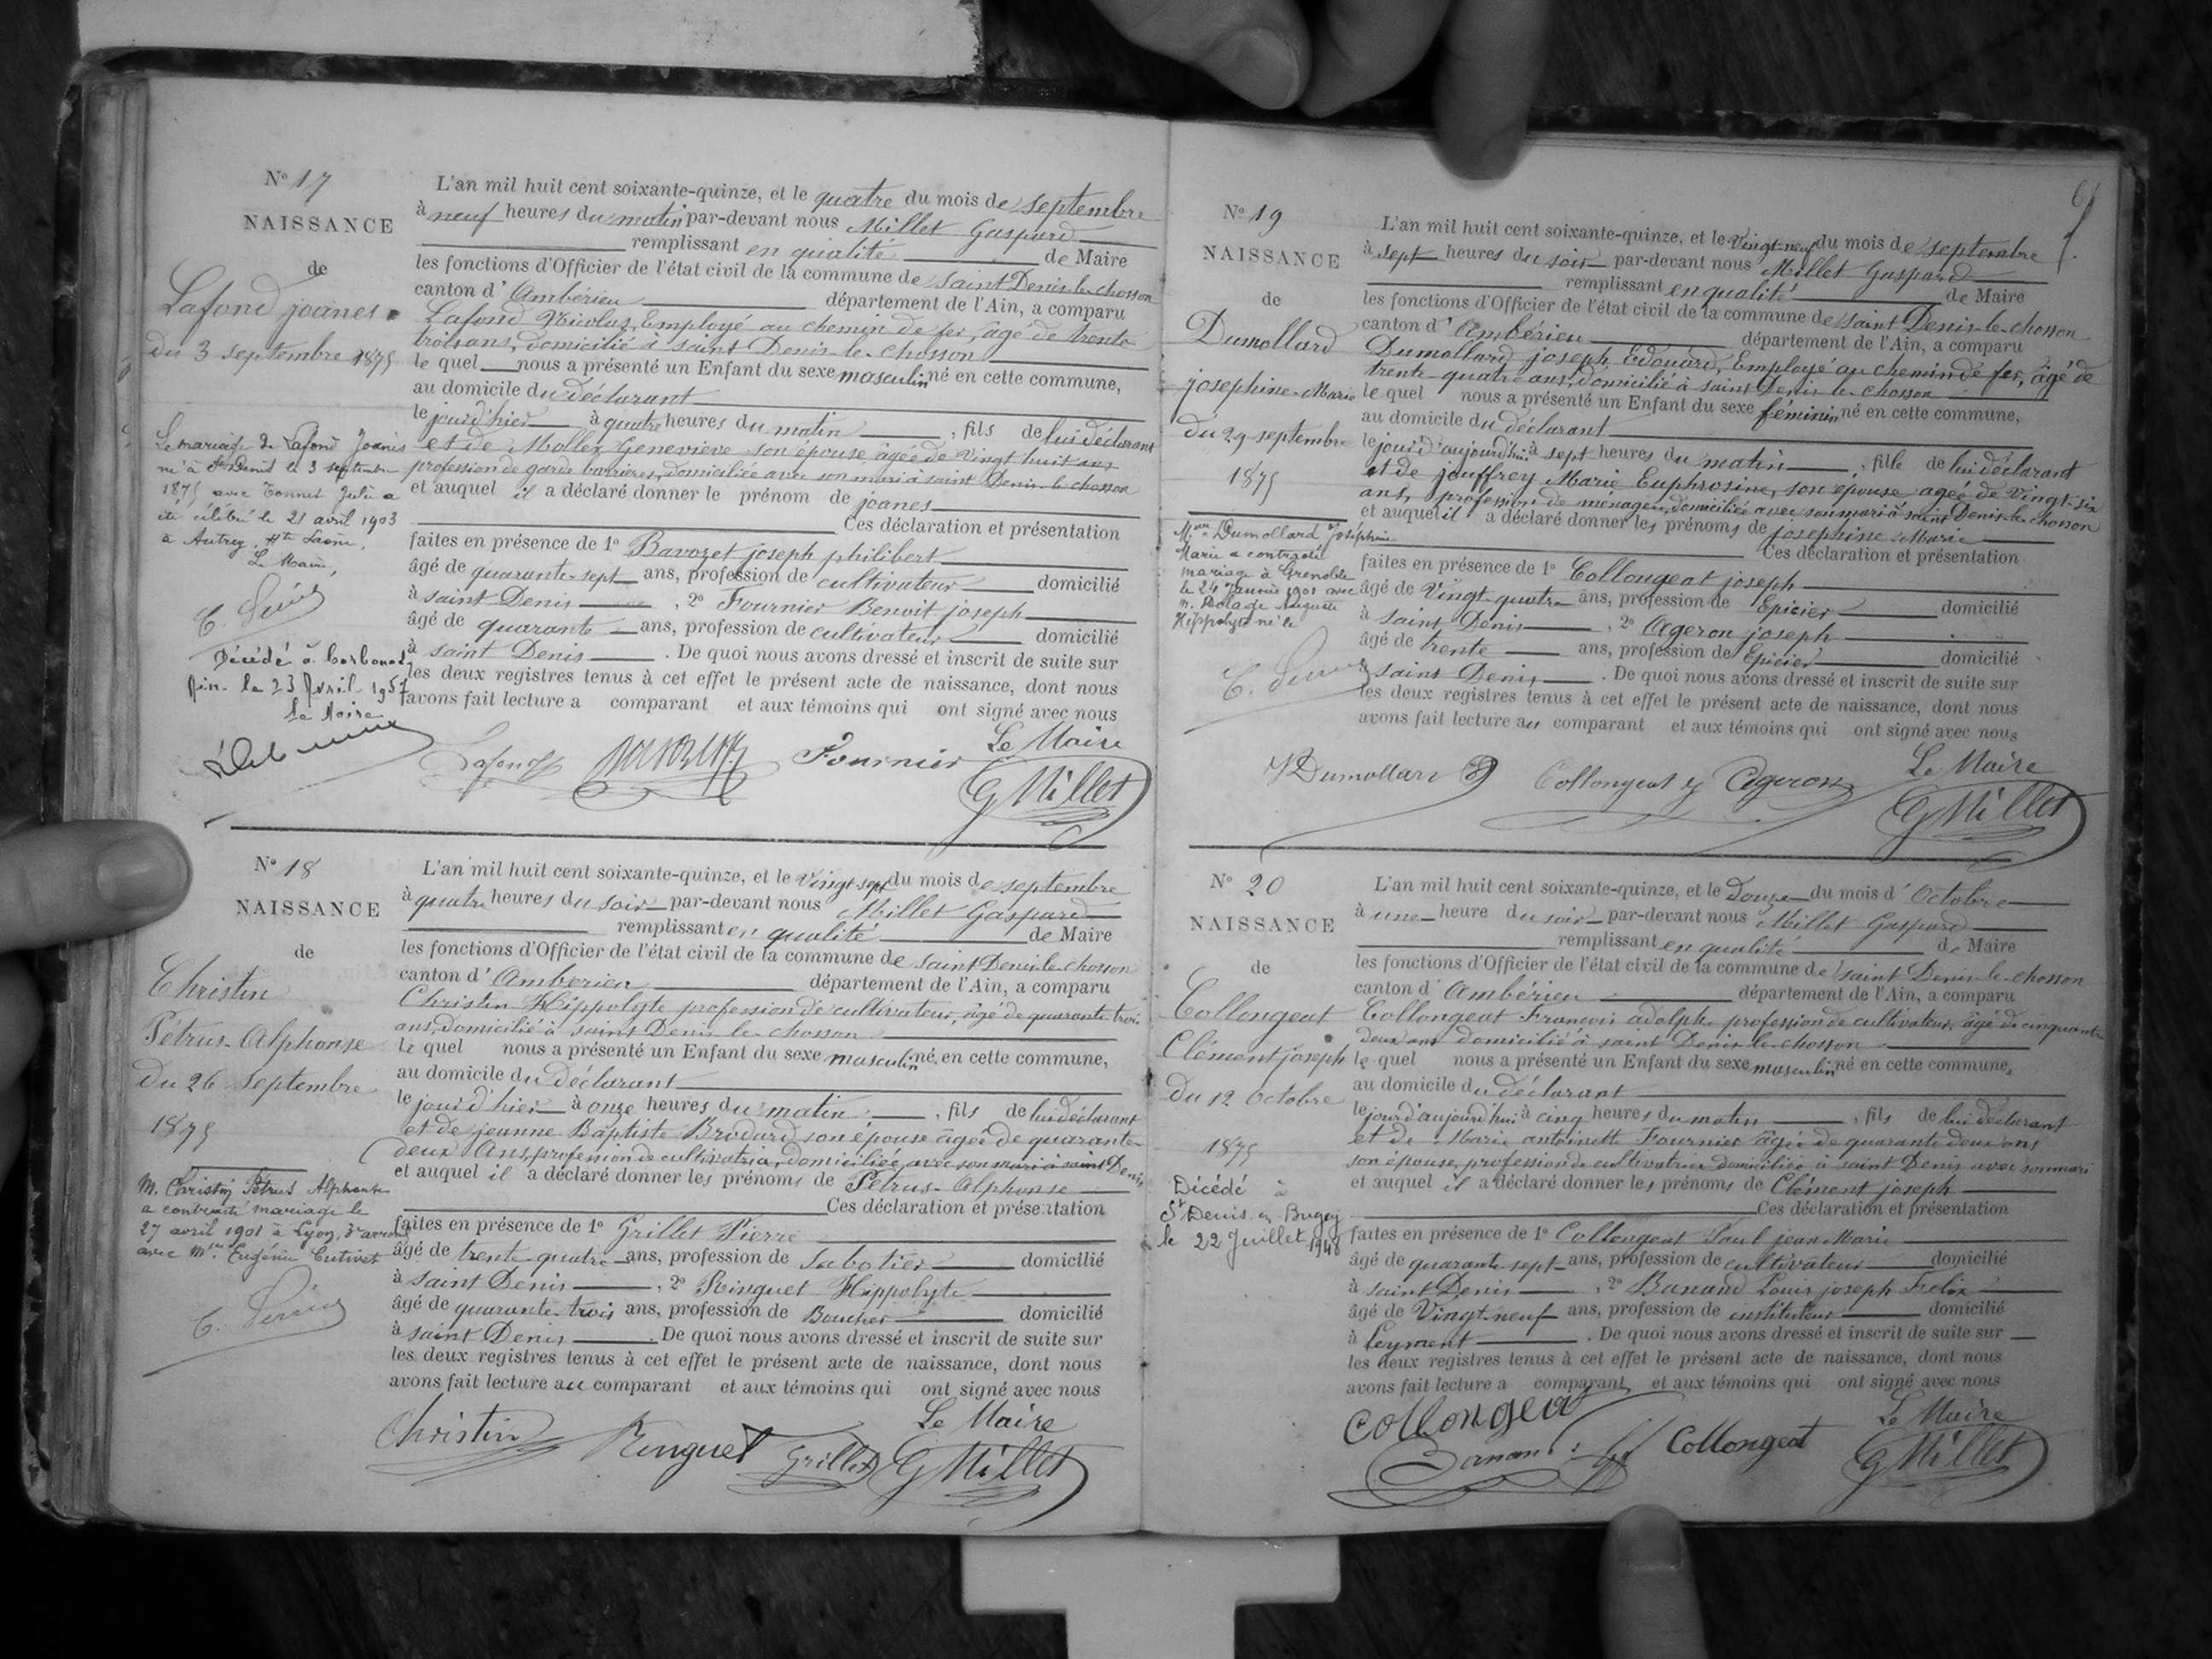 N° 17
NAISSANCE
de
Lafond joanes
du 3 septembre 1875
Le mariage de Lafond Joanès
né à St Denis le 3 septembre
1875 avec Tonnet Julie a
été célébré le 21 avril 1903
à Autrey, Hte Saône,
Le Maire,
Décédé à Cerbonod
Ain le 23 Avril 1957
Le Maire
L'an mil huit cent soixante-quinze, et le quatre du mois de septembre
à neuf heures du matin par-devant nous Millet Gaspard
remplissant en qualité de Maire
les fonctions d'Officier de l'état civil de la commune de saint Denis-le-chosson
canton d'Ambérieu département de l'Ain, a comparu
Lafond Nicolas, Employé au chemin de fer, âgé de trente
trois ans, domicilié à saint Denis-le-chosson
le quel nous a présenté un Enfant du sexe masculin né en cette commune,
au domicile du déclarant
le jour d'hier à quatre heures du matin, fils de lui déclarant
et de Mollex Geneviève son épouse âgée de Vingt huit ans
profession de garde barrières, domiciliée avec son mari à saint Denis-le-chosson
et auquel il a déclaré donner le prénom de joanes
Ces déclaration et présentation
faites en présence de 1° Bavozet joseph philibert
âgé de quarante-sept ans, profession de cultivateur domicilié
à saint Denis, 2° Fournier Benoit joseph
âgé de quarante ans, profession de cultivateur domicilié
à saint Denis. De quoi nous avons dressé et inscrit de suite sur
les deux registres tenus à cet effet le présent acte de naissance, dont nous
avons fait lecture a comparant et aux témoins qui ont signé avec nous
Le Maire
Lafond Fournier G Millet
N° 18
NAISSANCE
de
Christin
Pétrus-Alphonse
du 26 septembre
1875
M. Christin Pétrus Alphonse
a contracté mariage le
27 avril 1901 à Lyon, 3e arrond
avec Mlle Eugénie Cutivet
L'an mil huit cent soixante-quinze, et le Vingt-sept du mois de septembre
à quatre heures du soir par-devant nous Millet Gaspard
remplissant en qualité de Maire
les fonctions d'Officier de l'état civil de la commune de saint Denis-le-chosson
canton d'Amberieu département de l'Ain, a comparu
Christin Hippolyte profession de cultivateur, âgé de quarante trois
ans, domicilié à saint Denis-le-chosson
le quel nous a présenté un Enfant du sexe masculin né en cette commune,
au domicile du déclarant
le jour d'hier à onze heures du matin, fils de lui déclarant
et de jeanne Baptiste Brodard son épouse âgée de quarante-
deux Ans, profession de cultivatrice, domiciliée avec son mari à saint Denis
et auquel il a déclaré donner les prénoms de Pétrus-Alphonse
Ces déclaration et présentation
faites en présence de 1° Grillet Pierre
âgé de trente-quatre ans, profession de Sabotier domicilié
à saint Denis, 2° Ringuet Hippolyte
âgé de quarante-trois ans, profession de Boucher domicilié
à saint Denis. De quoi nous avons dressé et inscrit de suite sur
les deux registres tenus à cet effet le présent acte de naissance, dont nous
avons fait lecture au comparant et aux témoins qui ont signé avec nous
Le Maire
Christin Ringuet Grillet G Millet
N° 19
NAISSANCE
de
Dumollard
josephine-Marie
du 29 septembre
1875
Mlle Dumollard Joséphine
Marie a contracté
mariage à Grenoble
le 24 Janvier 1901 avec
Auguste
Hippolyte né le
L'an mil huit cent soixante-quinze, et le Vingt-neuf du mois de septembre
à sept heures du soir par-devant nous Millet Gaspard
remplissant en qualité de Maire
les fonctions d'Officier de l'état civil de la commune de saint Denis-le-chosson
canton d'Ambérieu département de l'Ain, a comparu
Dumollard joseph Edouard, Employé au chemin de fer, âgé de
trente-quatre ans, domicilié à saint Denis-le-chosson
le quel nous a présenté un Enfant du sexe féminin né en cette commune,
au domicile du déclarant
le jour d'aujourd'hui à sept heures du matin, fille de lui déclarant
et de jouffrey Marie Euphrosine, son épouse âgée de Vingt-six
ans, profession de ménagère, domiciliée avec son mari à saint Denis-le-chosson
et auquel il a déclaré donner les prénoms de josephine-Marie
Ces déclaration et présentation
faites en présence de 1° Collongeat joseph
âgé de Vingt-quatre ans, profession de Epicier domicilié
à saint Denis, 2° Ageron joseph
âgé de trente ans, profession de Epicier domicilié
à saint Denis. De quoi nous avons dressé et inscrit de suite sur
les deux registres tenus à cet effet le présent acte de naissance, dont nous
avons fait lecture au comparant et aux témoins qui ont signé avec nous
Le Maire
Dumollard Collongeat Ageron G Millet
N° 20
NAISSANCE
de
Collongeat
Clément joseph
du 12 Octobre
1875
Décédé à
St Denis en Bugey
le 22 Juillet 1948
L'an mil huit cent soixante-quinze, et le Douze du mois d'Octobre
à une heure du soir par-devant nous Millet Gaspard
remplissant en qualité de Maire
les fonctions d'Officier de l'état civil de la commune de saint Denis-le-chosson
canton d'Ambérieu département de l'Ain, a comparu
Collongeat François adolphe profession de cultivateur, âgé de cinquante
deux ans domicilié à saint Denis-le-chosson
le quel nous a présenté un Enfant du sexe masculin né en cette commune,
au domicile du déclarant
le jour d'aujourd'hui à cinq heures du matin, fils de lui déclarant
et de Marie antoinette Fournier âgée de quarante deux ans
son épouse, profession de cultivatrice domiciliée à saint Denis avec son mari
et auquel il a déclaré donner les prénoms de Clément joseph
Ces déclaration et présentation
faites en présence de 1° Collongeat Paul jean Marie
âgé de quarante-sept ans, profession de cultivateur domicilié
à saint Denis, 2° Banand Louis joseph Felix
âgé de Vingt-neuf ans, profession de instituteur domicilié
à Leyment. De quoi nous avons dressé et inscrit de suite sur
les deux registres tenus à cet effet le présent acte de naissance, dont nous
avons fait lecture a comparant et aux témoins qui ont signé avec nous
Le Maire
Collongeat
Collongeat G Millet